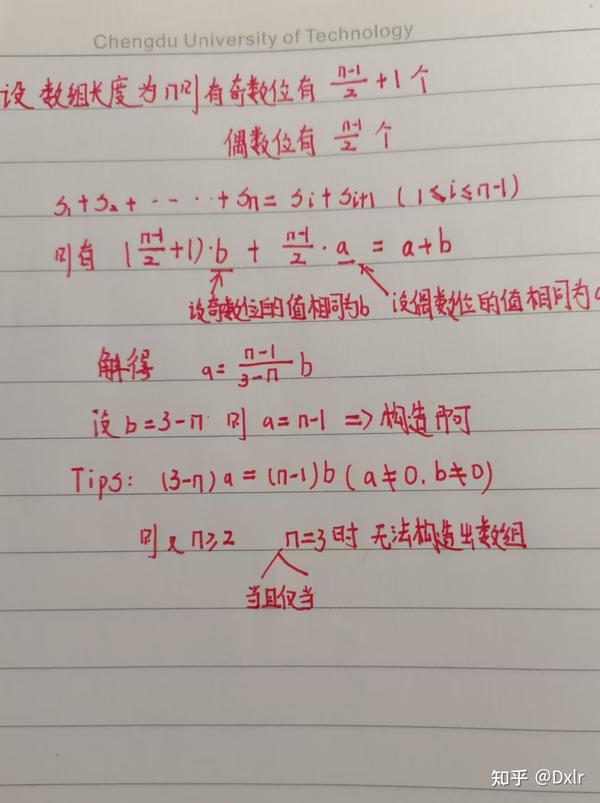 Chengdu University of Technology
设数组长度为n则有奇数位有 (n-1)/2 + 1 个
偶数位有 (n-1)/2 个
S₁+S₂+ ----- +Sn = Si+Si+1 (1≤i≤n-1)
则有 ((n-1)/2+1)·b + (n-1)/2·a = a+b
设奇数位的值相同为b 设偶数位的值相同为a
解得 a = (n-1)/(3-n) b
设 b=3-n 则 a=n-1 => 构造即可
Tips: (3-n)a = (n-1)b (a≠0, b≠0)
则 n≥2 n=3时 无法构造出数组
当且仅当
知乎 @Dxlr